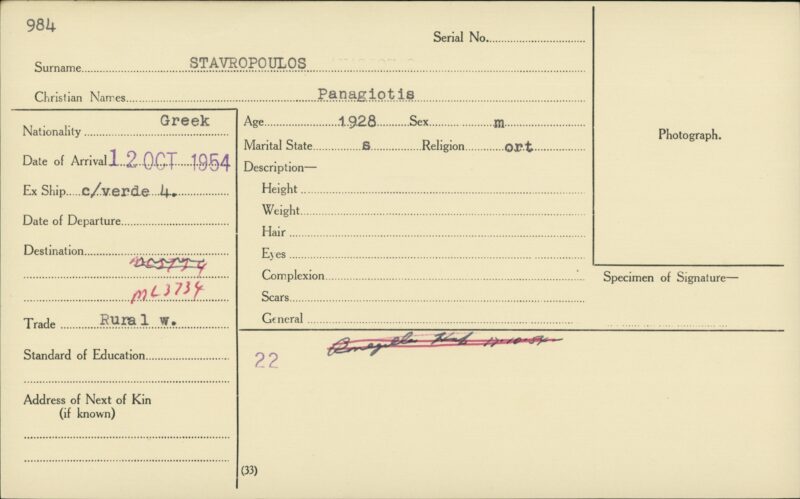 984
Serial No.
Surname STAVROPOULOS
Christian Names Panagiotis
Nationality Greek
Date of Arrival 12 OCT 1954
Ex Ship c/verde 4.
Date of Departure
Destination
ML3734
Trade Rural w.
Standard of Education
Address of Next of Kin
(if known)
Age 1928 Sex m
Marital State s Religion ort
Description—
Height
Weight
Hair
Eyes
Complexion
Scars
General
Photograph.
Specimen of Signature—
22
Bonegilla
(33)